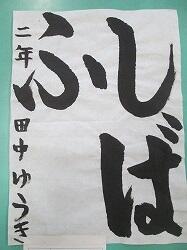 しば
ふ
二年 田中ゆうき